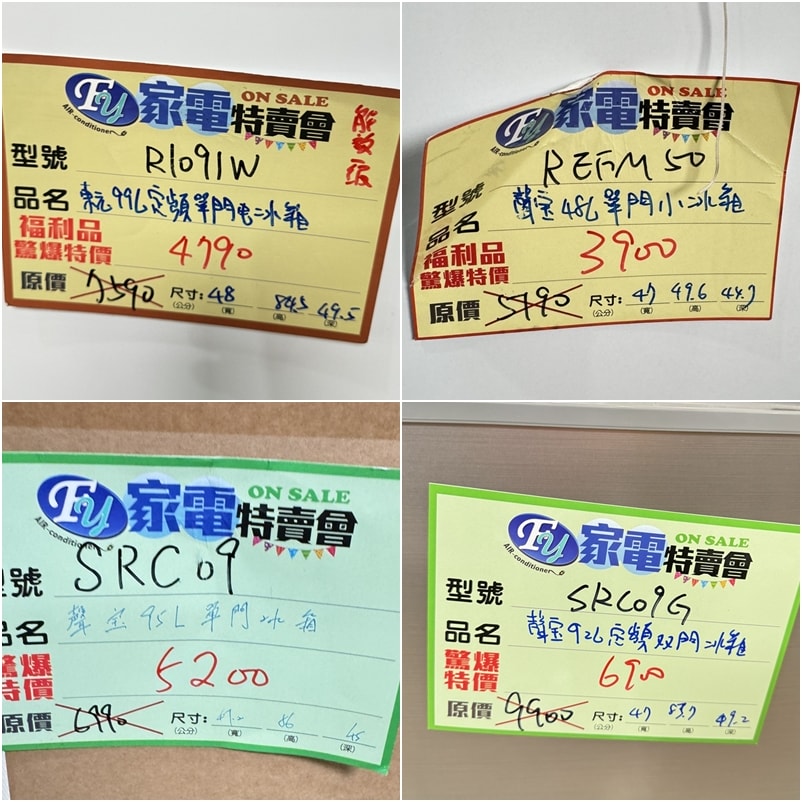 Fy 家電特賣會 ON SALE
AIR-conditioner
能效一級
型號 R1091W
品名 東元99L定頻單門電冰箱
福利品
驚爆特價 4790
原價 7590 尺寸:48 84.5 49.5
(公分) (寬) (高) (深)
Fy 家電特賣會 ON SALE
AIR-conditioner
型號 REFM50
品名 聲宝48L單門小冰箱
福利品
驚爆特價 3900
原價 5790 尺寸:47 49.6 44.7
(公分) (寬) (高) (深)
Fy 家電特賣會 ON SALE
AIR-conditioner
型號 SRC09
品名 聲宝95L單門冰箱
驚爆
特價 5200
原價 6990 尺寸: 86 45
(公分) (寬) (高) (深)
Fy 家電特賣會 ON SALE
AIR-conditioner
型號 SRC09G
品名 聲宝92L定頻双門冰箱
驚爆
特價 6900
原價 9900 尺寸:47 83.7 49.2
(公分) (寬) (高) (深)